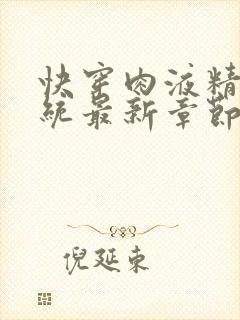 快穿肉液精
统最新章節
倪延东